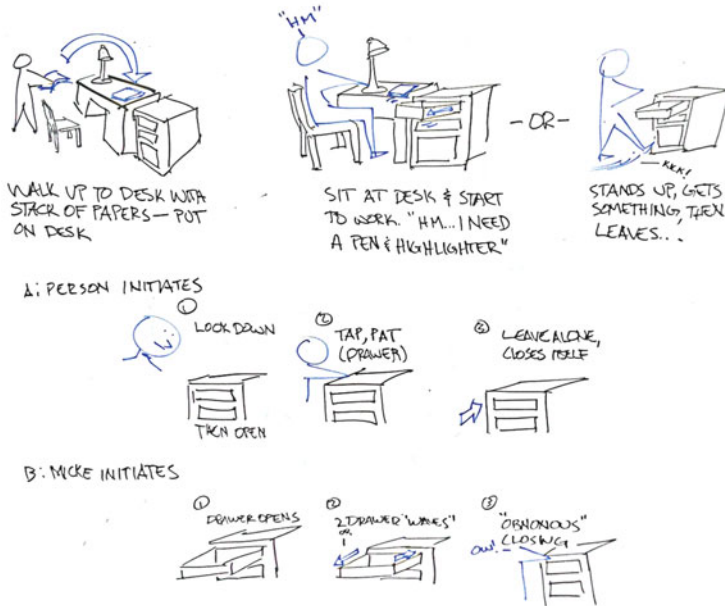 "HM"
WALK UP TO DESK WITH
STACK OF PAPERS — PUT
ON DESK
SIT AT DESK & START
TO WORK. "HM... I NEED
A PEN & HIGHLIGHTER"
- OR -
KKK!
STANDS UP, GETS
SOMETHING, THEN
LEAVES...
A: PERSON INITIATES
①
LOOK DOWN
THEN OPEN
②
TAP, PAT
(DRAWER)
③
LEAVE ALONE,
CLOSES ITSELF
B: MICKE INITIATES
①
DRAWER OPENS
②
2 DRAWER "WAVES"
OR
1
③
"OBNOXIOUS"
CLOSING
OW!